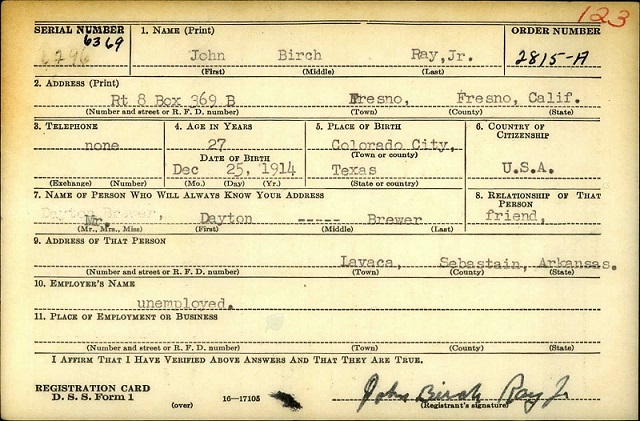 123
SERIAL NUMBER 1. NAME (Print) ORDER NUMBER
6369
6296 John Birch Ray, Jr. 2815-A
(First) (Middle) (Last)
2. ADDRESS (Print)
Rt 8 Box 369 B Fresno, Fresno, Calif.
(Number and street or R. F. D. number) (Town) (County) (State)
3. TELEPHONE 4. AGE IN YEARS 5. PLACE OF BIRTH 6. COUNTRY OF CITIZENSHIP
none 27 Colorado City,
DATE OF BIRTH (Town or county)
Dec 25, 1914 Texas U.S.A.
(Exchange) (Number) (Mo.) (Day) (Yr.) (State or country)
7. NAME OF PERSON WHO WILL ALWAYS KNOW YOUR ADDRESS 8. RELATIONSHIP OF THAT PERSON
Mr. Dayton ----- Brewer friend,
(Mr., Mrs., Miss) (First) (Middle) (Last)
9. ADDRESS OF THAT PERSON
Lavaca, Sebastain, Arkansas.
(Number and street or R. F. D. number) (Town) (County) (State)
10. EMPLOYER'S NAME
unemployed.
11. PLACE OF EMPLOYMENT OR BUSINESS
(Number and street or R. F. D. number) (Town) (County) (State)
I AFFIRM THAT I HAVE VERIFIED ABOVE ANSWERS AND THAT THEY ARE TRUE.
REGISTRATION CARD
D. S. S. Form 1 (over) 16—17105 John Birch Ray Jr
(Registrant's signature)